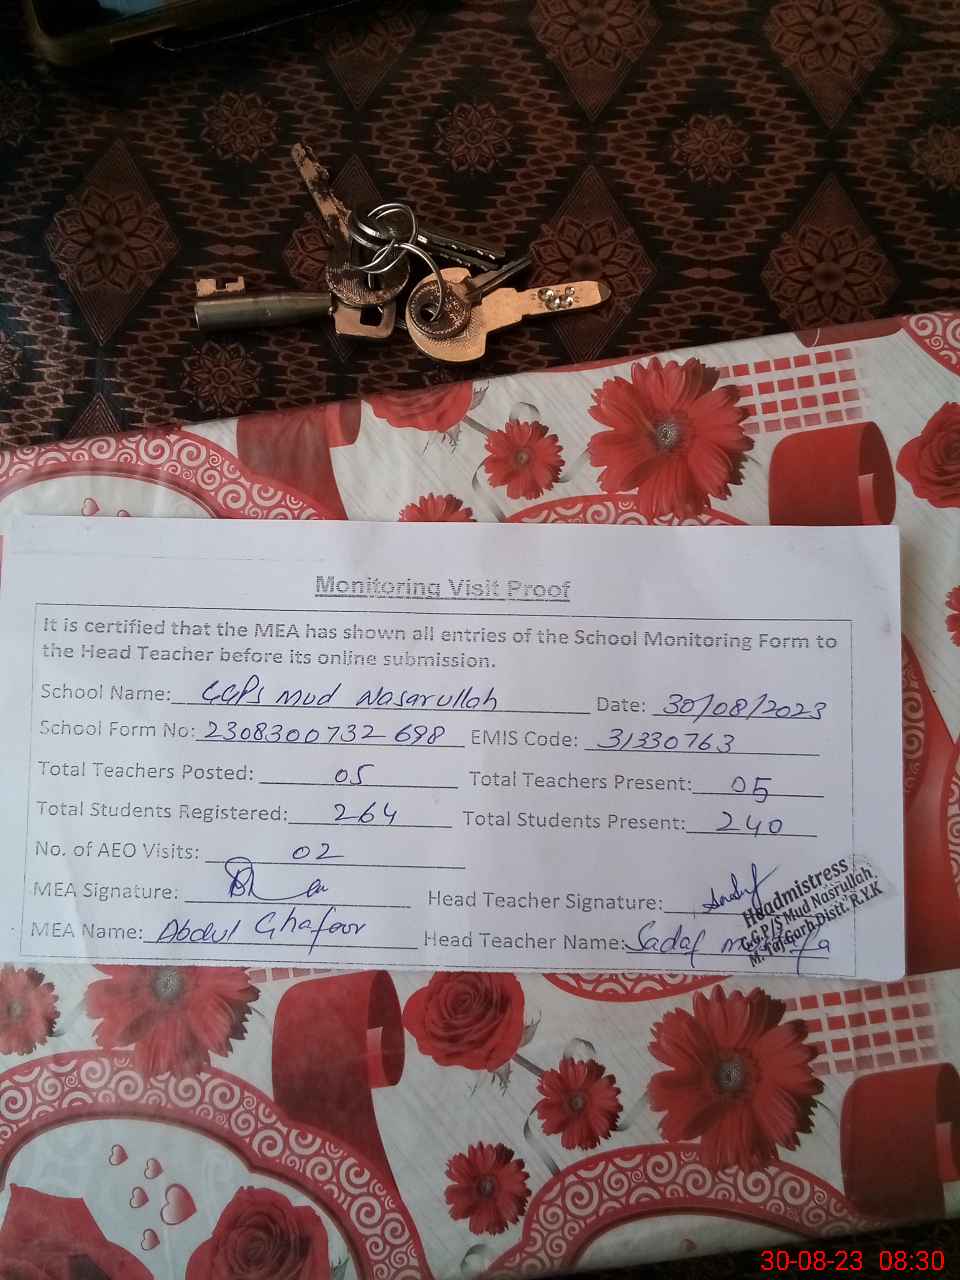 Monitoring Visit Proof
It is certified that the MEA has shown all entries of the School Monitoring Form to
the Head Teacher before its online submission.
School Name: GGPS Mud Nasarullah Date: 30/08/2023
School Form No: 2308300732698 EMIS Code: 31330763
Total Teachers Posted: 05 Total Teachers Present: 05
Total Students Registered: 264 Total Students Present: 240
No. of AEO Visits: 02
MEA Signature: Head Teacher Signature:
MEA Name: Abdul Ghafoor Head Teacher Name: Sadaf
Headmistress
G.G.P/S Mud Nasrullah,
M. Taj Garh Distt. R.Y.K
30-08-23 08:30